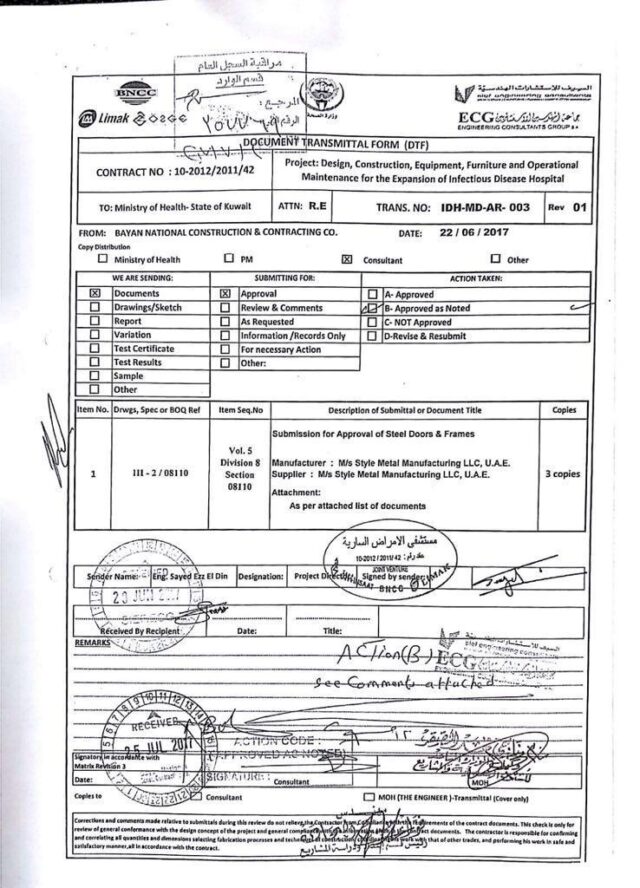 مراقبة السجل العام
قسم الوارد
المرجع :
BNCC
Limak
وزارة الصحة
السيف للاستشارات الهندسية
seif engineering consultants
ECG
ENGINEERING CONSULTANTS GROUP S.A
DOCUMENT TRANSMITTAL FORM (DTF)
CONTRACT NO : 10-2012/2011/42
Project: Design, Construction, Equipment, Furniture and Operational Maintenance for the Expansion of Infectious Disease Hospital
TO: Ministry of Health- State of Kuwait
ATTN: R.E
TRANS. NO: IDH-MD-AR- 003
Rev 01
FROM: BAYAN NATIONAL CONSTRUCTION & CONTRACTING CO.
DATE: 22 / 06 / 2017
Copy Distribution
Ministry of Health
PM
Consultant
Other
WE ARE SENDING:
SUBMITTING FOR:
ACTION TAKEN:
Documents
Approval
A- Approved
Drawings/Sketch
Review & Comments
B- Approved as Noted
Report
As Requested
C- NOT Approved
Variation
Information /Records Only
D-Revise & Resubmit
Test Certificate
For necessary Action
Test Results
Other:
Sample
Other
Item No.
Drwgs, Spec or BOQ Ref
Item Seq.No
Description of Submittal or Document Title
Copies
1
III - 2 / 08110
Vol. 5
Division 8
Section
08110
Submission for Approval of Steel Doors & Frames
Manufacturer : M/s Style Metal Manufacturing LLC, U.A.E.
Supplier : M/s Style Metal Manufacturing LLC, U.A.E.
Attachment:
As per attached list of documents
3 copies
مستشفى الأمراض السارية
عقد رقم : 10-2012/2011/42
JOINT VENTURE
BNCC
LIMAK
Sender Name:
Eng. Sayed Ezz El Din
Designation:
Project Director
Signed by sender:
Received By Recipient
Date:
Title:
REMARKS
ACTION(B)
ECG
see Comments attached
RECEIVED
25 JUL 2017
ACTION CODE :
(APPROVED AS NOTED)
SIGNATURE:
Signatory in accordance with
Matrix Revision 3
Date:
Consultant
MOH
Copies to
Consultant
MOH (THE ENGINEER )-Transmittal (Cover only)
Corrections and comments made relative to submittals during this review do not
requirements of the contract documents. This check is only for
review of general conformance with the design concept of the project and general
documents. The contractor is responsible for confirming
and correlating all quantities and dimensions selecting fabrication processes and
with that of other trades, and performing his work in safe and
satisfactory manner,all in accordance with the contract.